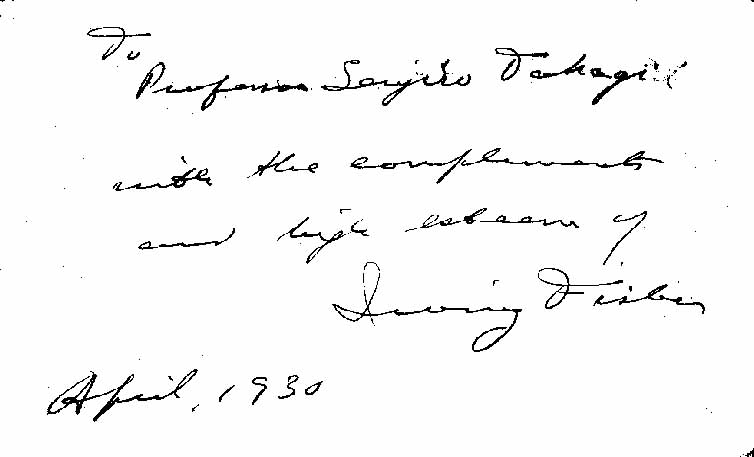 To
Professor Seijiro Takagi
with the complements
and high esteem of
Irving Fisher
April, 1930